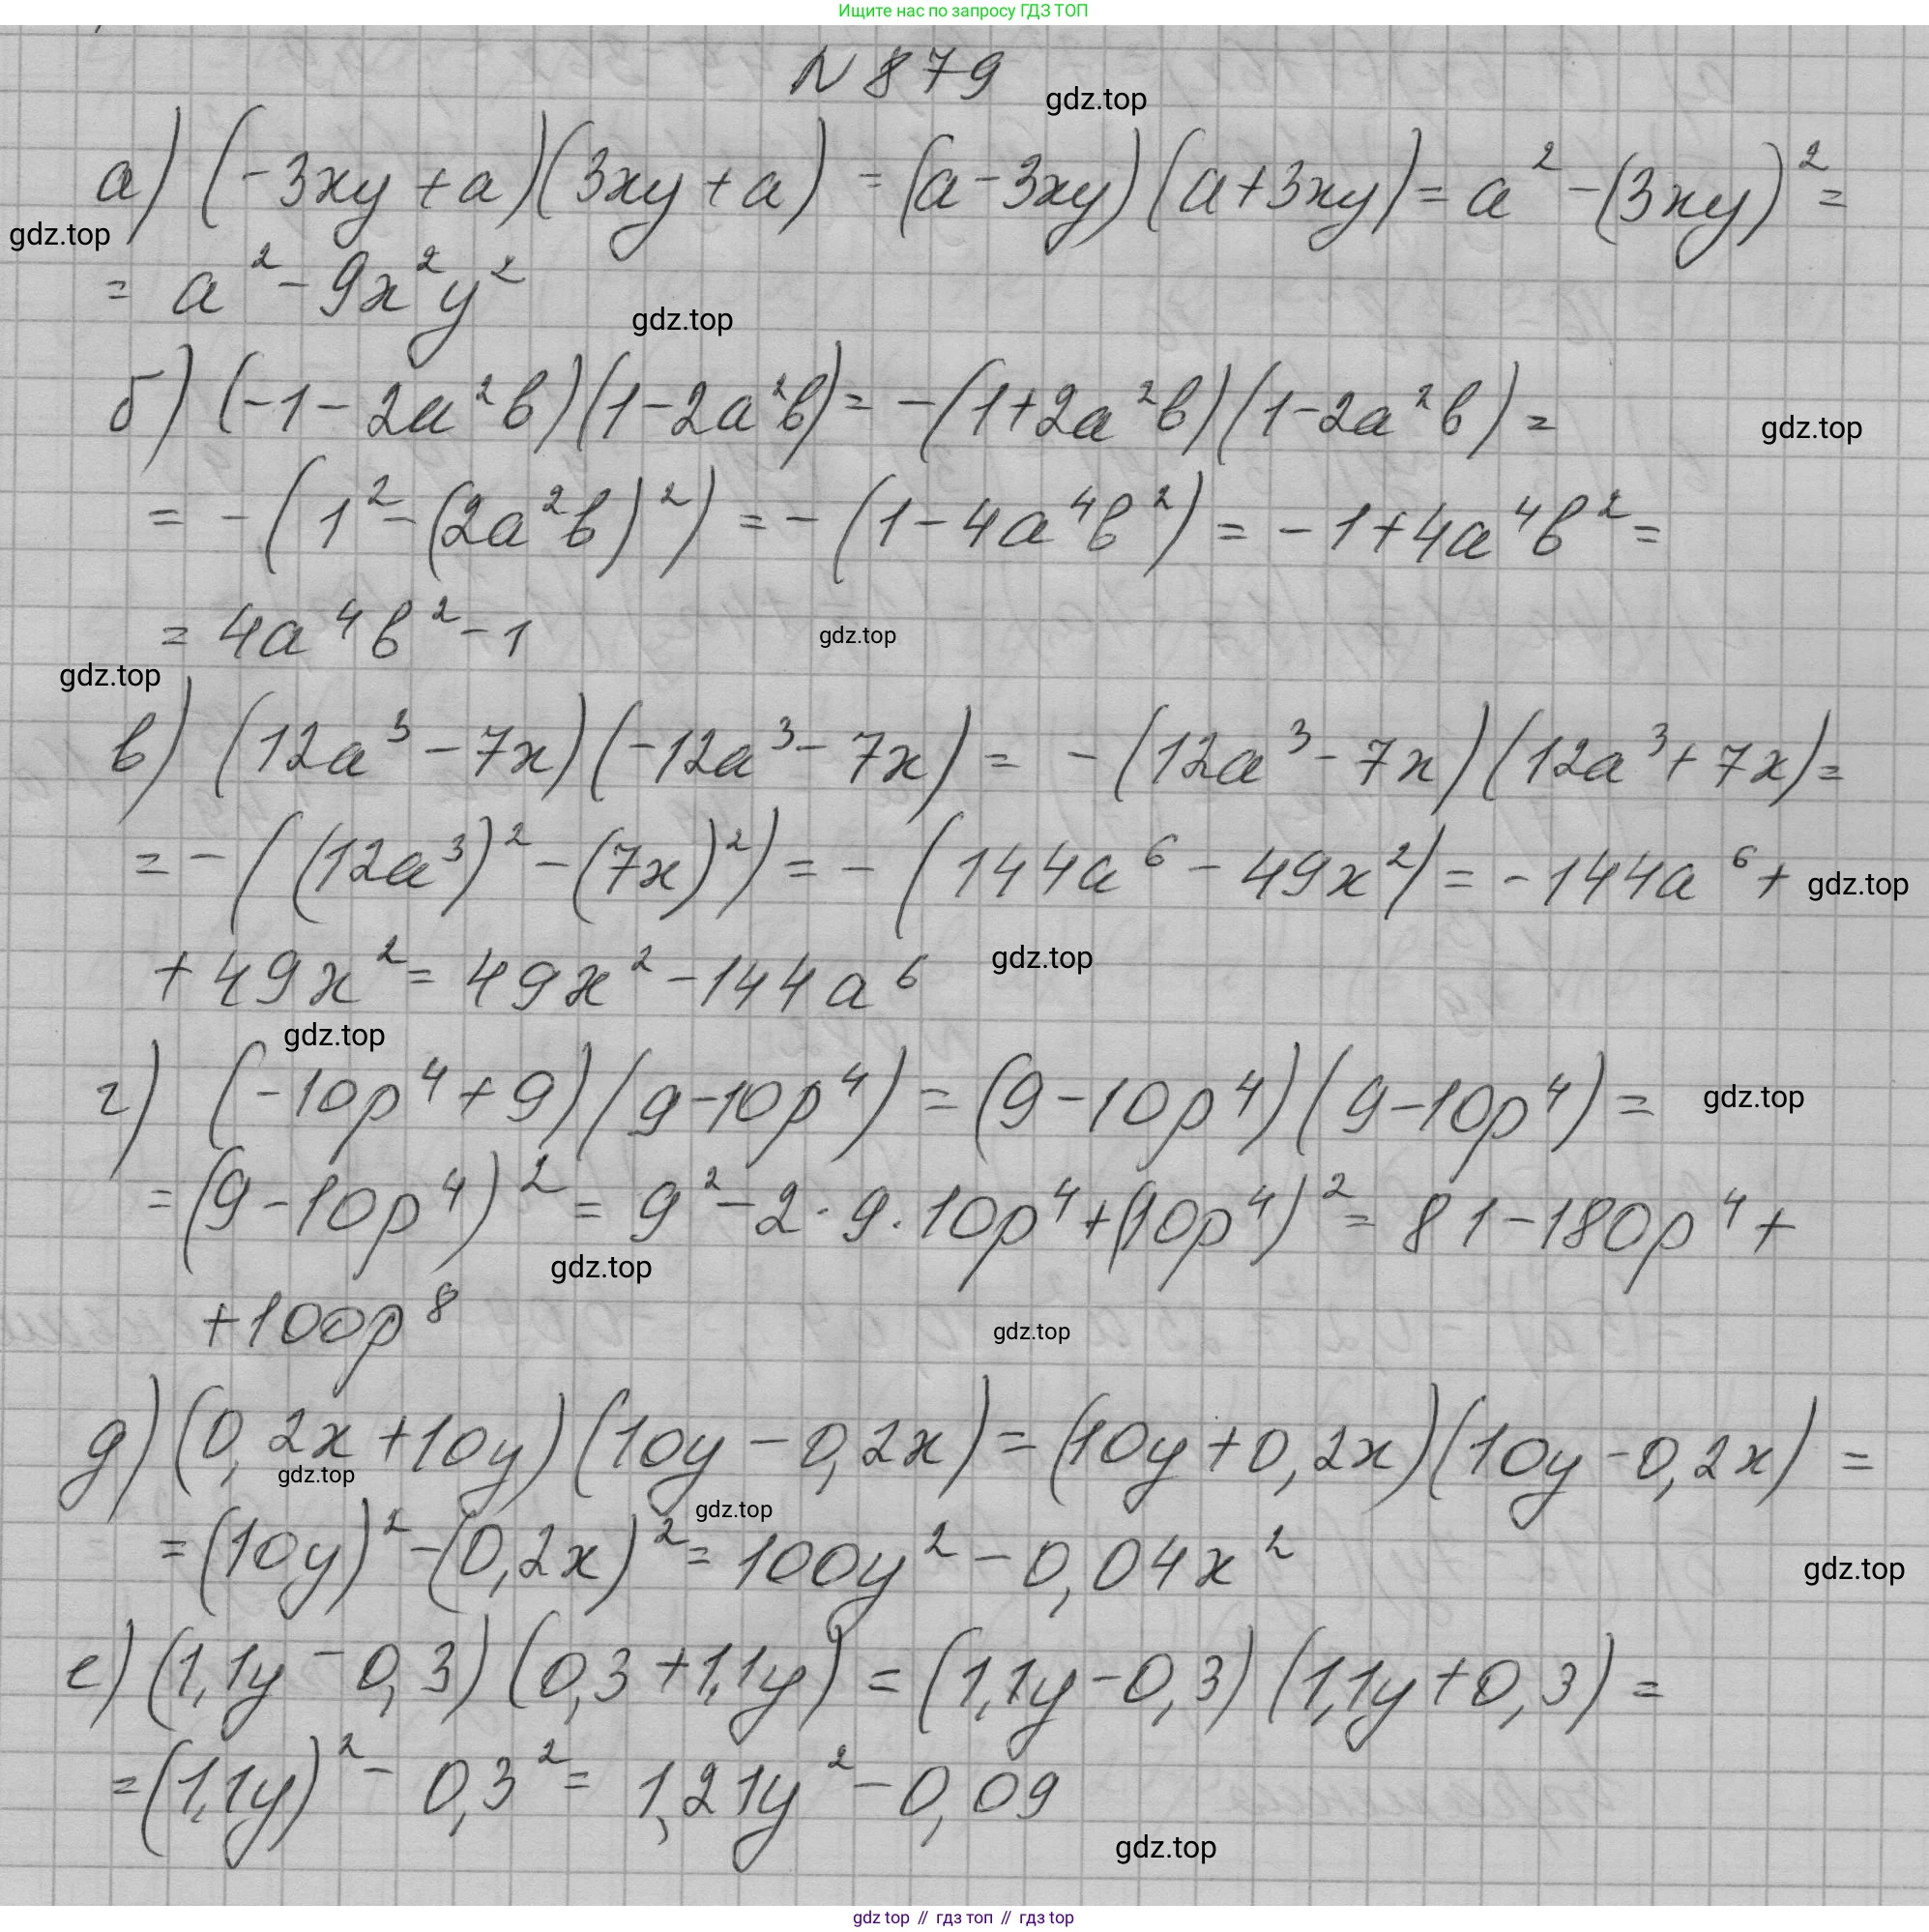 Ищите нас по запросу ГДЗ ТОП
N 879
gdz.top
а) (-3xy + a)(3xy + a) = (a - 3xy)(a + 3xy) = a² - (3xy)² =
gdz.top
= a² - 9x²y²
gdz.top
б) (-1 - 2a²b)(1 - 2a²b) = -(1 + 2a²b)(1 - 2a²b) =
gdz.top
= -(1² - (2a²b)²) = -(1 - 4a⁴b²) = -1 + 4a⁴b² =
= 4a⁴b² - 1
gdz.top
gdz.top
в) (12a³ - 7x)(-12a³ - 7x) = -(12a³ - 7x)(12a³ + 7x) =
= -((12a³)² - (7x)²) = -(144a⁶ - 49x²) = -144a⁶ +
gdz.top
+ 49x² = 49x² - 144a⁶
gdz.top
gdz.top
г) (-10p⁴ + 9)(9 - 10p⁴) = (9 - 10p⁴)(9 - 10p⁴) =
gdz.top
= (9 - 10p⁴)² = 9² - 2 · 9 · 10p⁴ + (10p⁴)² = 81 - 180p⁴ +
gdz.top
+ 100p⁸
gdz.top
д) (0,2x + 10y)(10y - 0,2x) = (10y + 0,2x)(10y - 0,2x) =
gdz.top
gdz.top
= (10y)² - (0,2x)² = 100y² - 0,04x²
gdz.top
е) (1,1y - 0,3)(0,3 + 1,1y) = (1,1y - 0,3)(1,1y + 0,3) =
= (1,1y)² - 0,3² = 1,21y² - 0,09
gdz.top
gdz top // гдз топ // гдз top